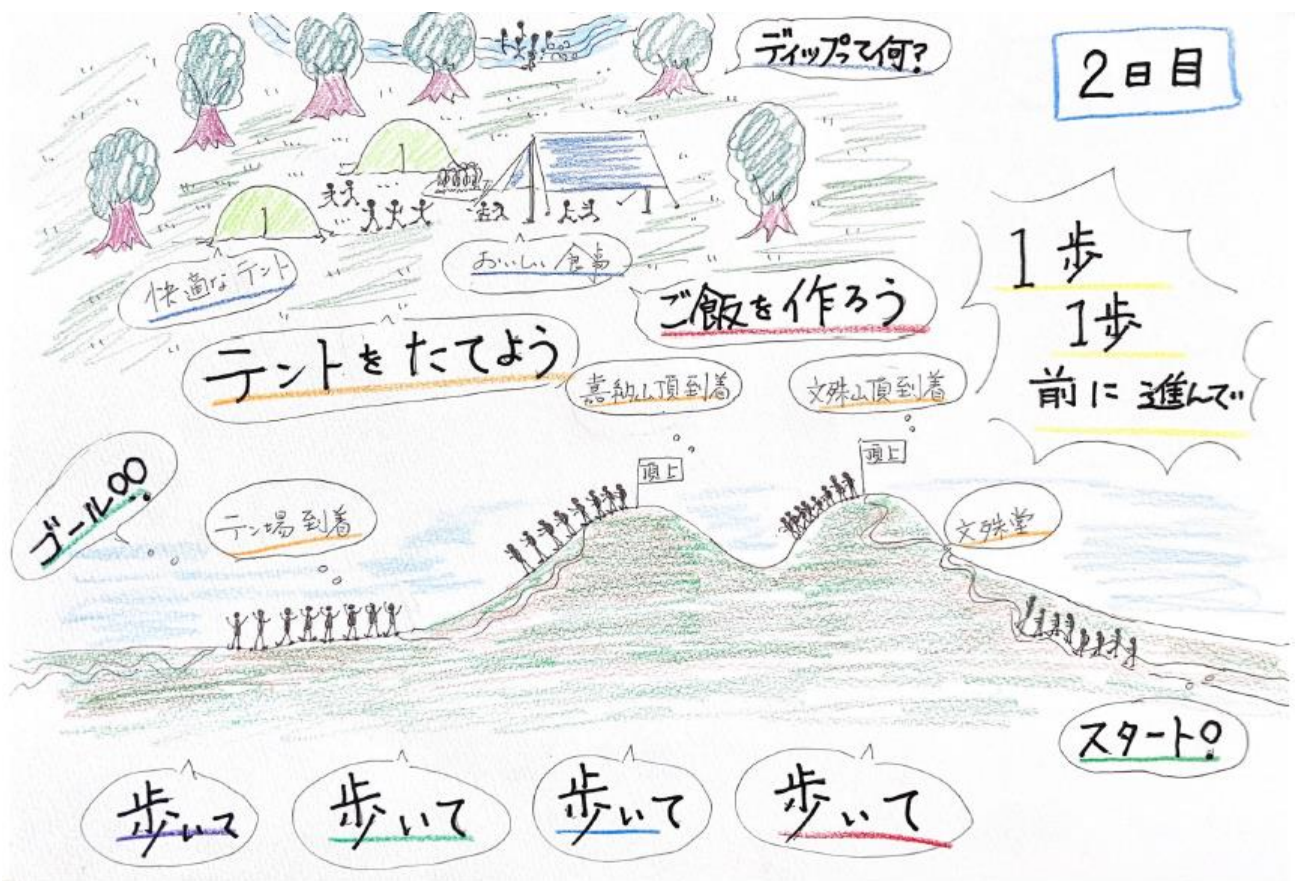 ディップって何?
2日目
快適なテント
おいしい食事
ご飯を作ろう
テントをたてよう
1歩
1歩
前に進んで
嘉納山頂到着
文殊山頂到着
頂上
頂上
ゴール!!
テン場到着
文殊堂
スタート!
歩いて
歩いて
歩いて
歩いて